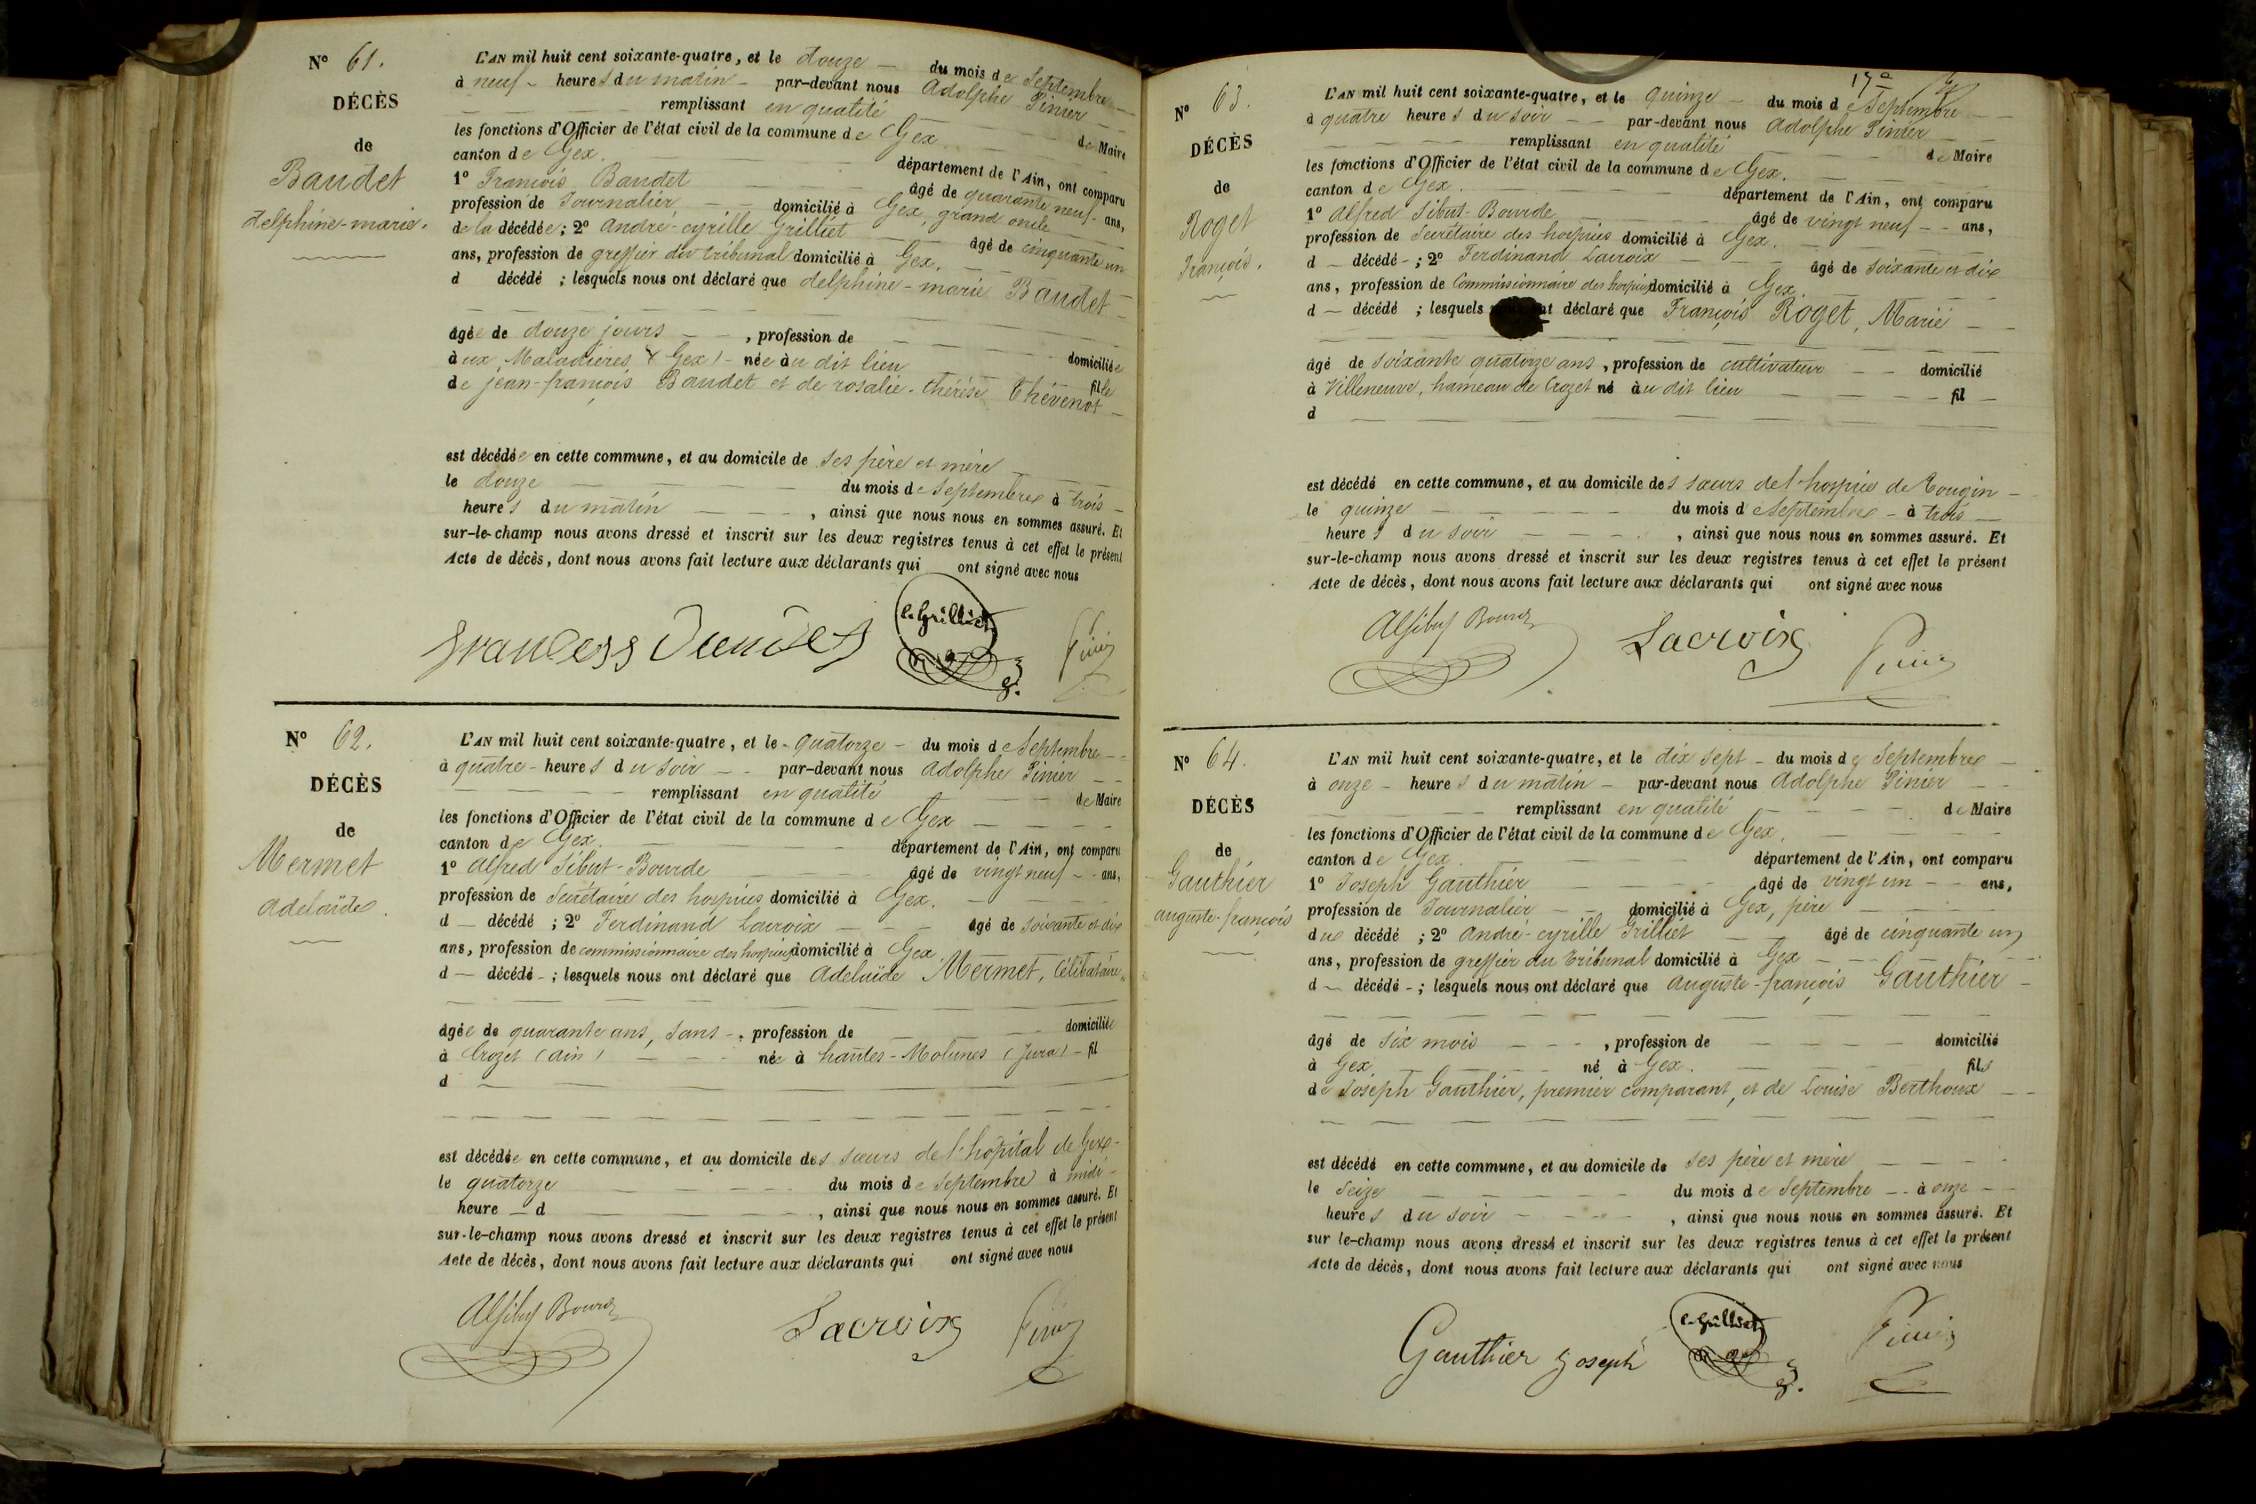 N° 61.
DÉCÈS
de
Baudet
delphine-marie.
L'AN mil huit cent soixante-quatre, et le douze du mois de Septembre
à neuf heures du matin par-devant nous Adolphe Pinier
remplissant en qualité de Maire
les fonctions d'Officier de l'état civil de la commune de Gex
canton de Gex. département de l'Ain, ont comparu
1° François Baudet âgé de quarante neuf ans,
profession de Journalier domicilié à Gex, grand oncle
de la décédée; 2° André-cyrille Grilliet âgé de cinquante un
ans, profession de greffier du tribunal domicilié à Gex.
d décédé ; lesquels nous ont déclaré que delphine-marie Baudet
âgée de douze jours, profession de domiciliée
aux Maladières (Gex) née au dit lieu fille
de jean-françois Baudet et de rosalie-thérèse Thévenot
est décédée en cette commune, et au domicile de ses père et mère
le douze du mois de Septembre à trois
heures du matin, ainsi que nous nous en sommes assuré. Et
sur-le-champ nous avons dressé et inscrit sur les deux registres tenus à cet effet le présent
Acte de décès, dont nous avons fait lecture aux déclarants qui ont signé avec nous
C. Grilliet
Pinier
N° 62.
DÉCÈS
de
Mermet
adelaïde.
L'AN mil huit cent soixante-quatre, et le quatorze du mois de Septembre
à quatre heures du soir par-devant nous Adolphe Pinier
remplissant en qualité de Maire
les fonctions d'Officier de l'état civil de la commune de Gex
canton de Gex. département de l'Ain, ont comparu
1° Alfred Sibut-Bourde âgé de vingt neuf ans,
profession de Secrétaire des hospices domicilié à Gex.
d décédé ; 2° Ferdinand Lacroix âgé de soixante et dix
ans, profession de commissionnaire des hospices domicilié à Gex
d décédé ; lesquels nous ont déclaré que Adelaïde Mermet, Célibataire,
âgée de quarante ans, sans profession de domiciliée
à Crozet (ain) née à hautes-Molunes (Jura) fil
d
est décédée en cette commune, et au domicile des sœurs de l'hopital de Gex
le quatorze du mois de Septembre à midi
heure d , ainsi que nous nous en sommes assuré. Et
sur-le-champ nous avons dressé et inscrit sur les deux registres tenus à cet effet le présent
Acte de décès, dont nous avons fait lecture aux déclarants qui ont signé avec nous
Al Sibut Bourde
Lacroix
Pinier
17e
N° 63.
DÉCÈS
de
Roget
François.
L'AN mil huit cent soixante-quatre, et le quinze du mois de Septembre
à quatre heures du soir par-devant nous Adolphe Pinier
remplissant en qualité de Maire
les fonctions d'Officier de l'état civil de la commune de Gex.
canton de Gex. département de l'Ain, ont comparu
1° Alfred Sibut-Bourde âgé de vingt neuf ans,
profession de Secrétaire des hospices domicilié à Gex.
d décédé ; 2° Ferdinand Lacroix âgé de soixante et dix
ans, profession de Commissionnaire des hospices domicilié à Gex
d décédé ; lesquels déclaré que François Roget, Marié
âgé de soixante quatorze ans, profession de cultivateur domicilié
à Villeneuve, hameau de Crozet né au dit lieu fil
d
est décédé en cette commune, et au domicile des sœurs de l'hospice de Tougin
le quinze du mois de Septembre à trois
heures du soir, ainsi que nous nous en sommes assuré. Et
sur-le-champ nous avons dressé et inscrit sur les deux registres tenus à cet effet le présent
Acte de décès, dont nous avons fait lecture aux déclarants qui ont signé avec nous
Al Sibut Bourde
Lacroix
Pinier
N° 64.
DÉCÈS
de
Gauthier
auguste-françois
L'AN mil huit cent soixante-quatre, et le dix sept du mois de Septembre
à onze heures du matin par-devant nous Adolphe Pinier
remplissant en qualité de Maire
les fonctions d'Officier de l'état civil de la commune de Gex.
canton de Gex. département de l'Ain, ont comparu
1° Joseph Gauthier âgé de vingt un ans,
profession de Journalier domicilié à Gex, père
du décédé ; 2° André-cyrille Grilliet âgé de cinquante un
ans, profession de greffier du tribunal domicilié à Gex
d décédé ; lesquels nous ont déclaré que Auguste-françois Gauthier
âgé de six mois, profession de domicilié
à Gex, né à Gex. fils
de Joseph Gauthier, premier comparant, et de Louise Berthoux
est décédé en cette commune, et au domicile de ses père et mère
le Seize du mois de Septembre à onze
heures du soir, ainsi que nous nous en sommes assuré. Et
sur le-champ nous avons dressé et inscrit sur les deux registres tenus à cet effet le présent
Acte de décès, dont nous avons fait lecture aux déclarants qui ont signé avec nous
Gauthier Joseph
C. Grilliet
Pinier